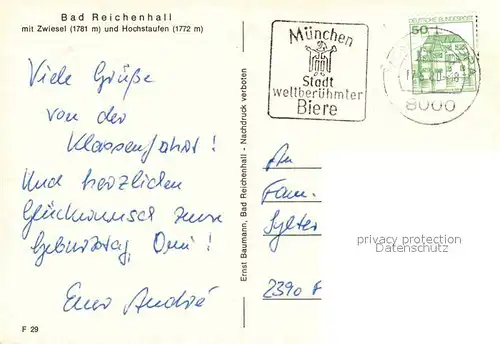 Bad Reichenhall
mit Zwiesel (1781 m) und Hochstaufen (1772 m)
Viele Grüße
von der
Klassenfahrt!
Und herzlichen
Glückwunsch zum
Geburtstag, Omi!
Euer André
F 29
Ernst Baumann, Bad Reichenhall - Nachdruck verboten
München
Stadt
weltberühmter
Biere
DEUTSCHE BUNDESPOST
50
8000
An
Fam.
Sylter
2390
privacy protection
Datenschutz